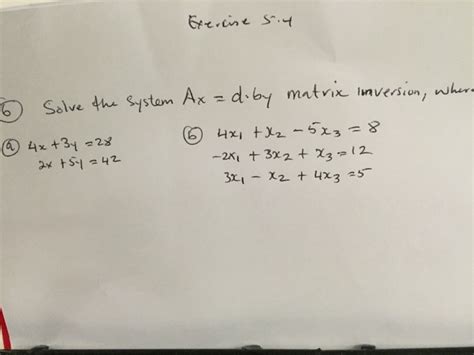 Exercise 5.4
6 Solve the system Ax = d.by matrix inversion, where
(a) 4x + 3y = 28
2x + 5y = 42
(b) 4x₁ + x₂ - 5x₃ = 8
-2x₁ + 3x₂ + x₃ = 12
3x₁ - x₂ + 4x₃ = 5